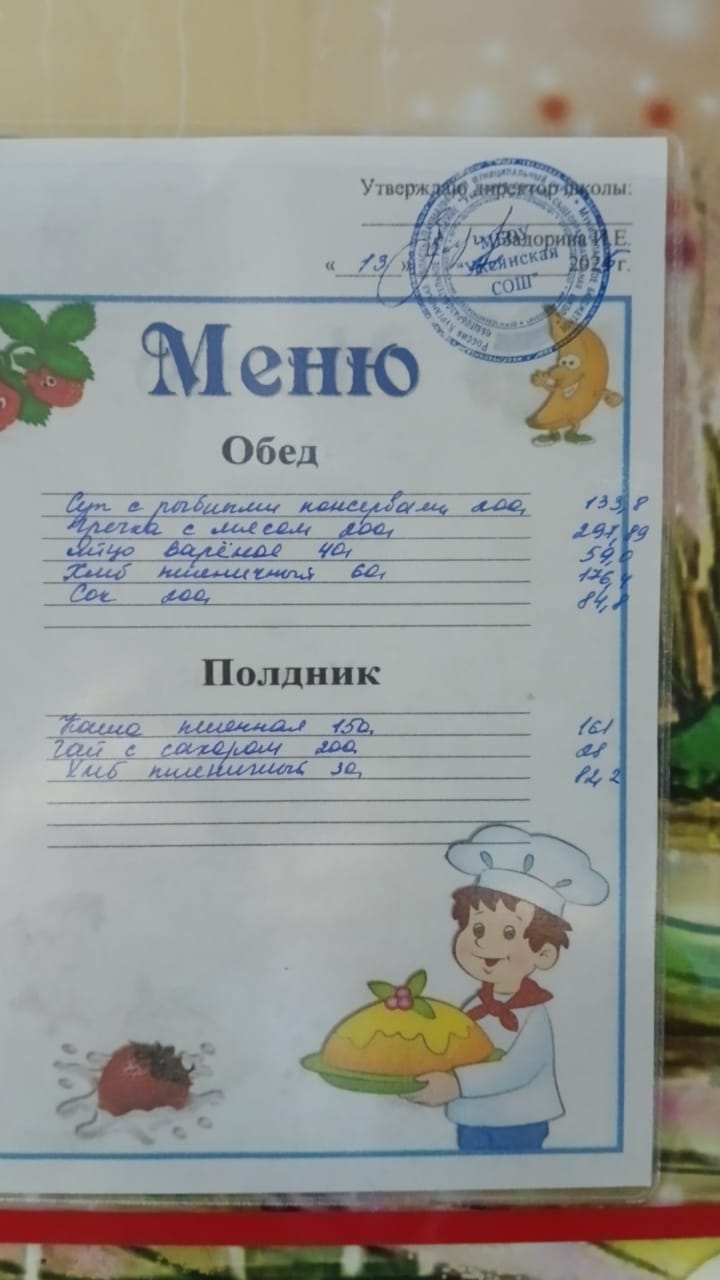 Утверждаю директор школы:
Задорина И.Е.
« 13 » 202 г.
МБОУ
"Уксянская
СОШ"
Меню
Обед
Суп с рыбными консервами 200, 133,8
Гречка с мясом 200, 291,89
Яйцо варёное 40, 59,0
Хлеб пшеничный 60, 176,4
Сок 200, 84,8
Полдник
Каша пшенная 150, 161
Чай с сахаром 200 28
Хлеб пшеничный 30, 82,2